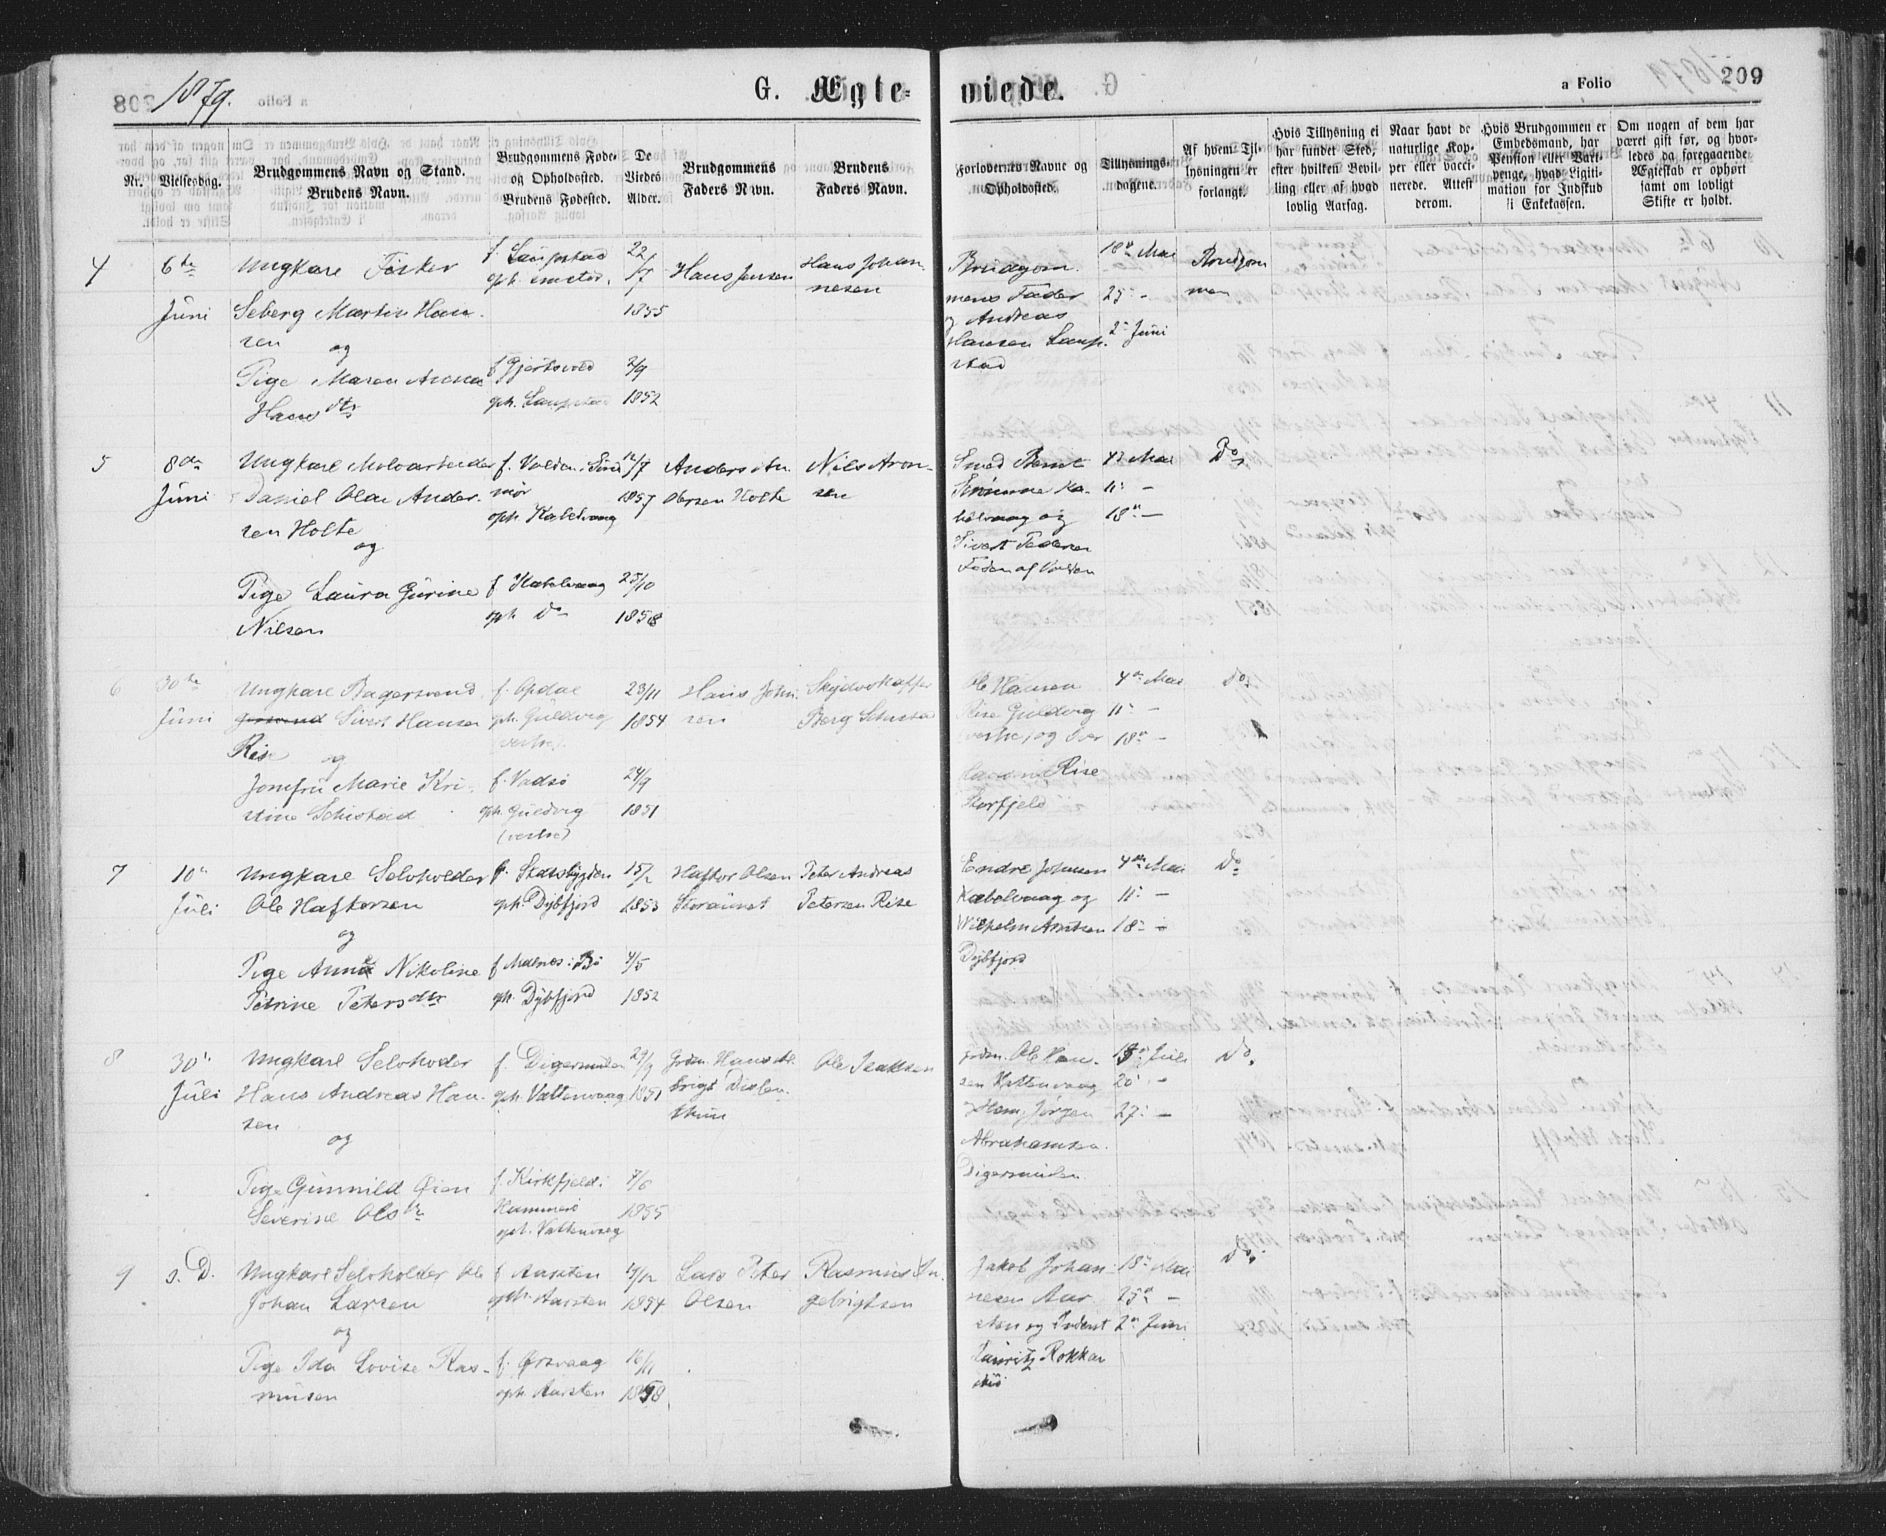 1879.
G. Ægte-
viede.
a Folio
209
Nr.
Vielsesdag.
Brudgommens Navn og Stand.
Brudens Navn.
Brudgommens Føde-
og Opholdssted.
Brudens Fødested.
De
Viedes
Alder.
Brudgommens
Faders Navn.
Brudens
Faders Navn.
Forlovernes Navne og
Opholdssted.
Tillysnings-
dagene.
Af hvem Til-
lysningen er
forlangt.
Hvis Tillysning ei
har fundet Sted,
efter hvilken Bevil-
ling eller af hvad
lovlig Aarsag.
Naar havt de
naturlige Kop-
per eller vacci-
nerede. Attest
derom.
Hvis Brudgommen er
Embedsmand, har
Pension eller Vart-
penge, hvad Ligiti-
mation for Indskud
i Enkekassen.
Om nogen af dem har
været gift før, og hvor-
ledes da foregaaende
Ægteskab er ophørt
samt om lovligt
Skifte er holdt.
4
6te
Juni
Ungkarl Fisker
Seberg Martin Han-
sen
og
Pige Maren Anna
Hansdtr
f. Laupstad
oph. smsteds.
f. Gjertsvold
oph. Laupstad
22/7
1855
2/9
1852
Hans Jensen
Hans Johan-
nesen
Brudgom-
mens Fader
og Andreas
Hansen Laup-
stad
18de Mai
25- -
2- Juni
Brudgom
men
5
8de
Juni
Ungkarl Malerarbeider
Daniel Olai Ander-
sen Holte
og
Pige Laura Gurine
Nilsen
f. Volden i Sønd
mør
oph. Kabelvaag
f. Kabelvaag
oph. Do
12/7
1857
25/10
1858
Anders An
dersen Holte
Nils Aron-
sen
Smed Bernt
Strømme Ka-
belvaag og
Sivert Pedersen
Foden af Volden
4de Mai
11- -
18de -
Do
6
30te
Juni
Ungkarl Bagersvend
Sivert Hansen
Rise
og
Jomfru Marie Kri-
stine Schistad
f. Opdal
oph. Guldvig
(vestre)
f. Vadsø
oph. Guldvig
(vestre)
23/11
1854
24/9
1851
Hans John
sen
Skydsskaffer
Berg Schistad
Ole Hansen
Rise Guldvig
vestre, og Iver
Rise
Storfjeld
4de Mai
11- -
18de -
Do
7
10de
Juli
Ungkarl Selvholder
Ole Haftorsen
og
Pige Anna Nikoline
Petrine Petersdtr
f. Stadsbygden
oph. Dybfjord
f. Malnes i Bø
oph. Dybfjord
15/2
1853
4/5
1852
Haftor Olsen
Storaunet
Peter Andreas
Petersen Rise
Endre Johnsen
Kabelvaag og
Wilhelm Arntsen
Dybfjord
4de Mai
11- -
18- -
Do
8
30te
Juli
Ungkarl Selvhoder
Hans Andreas Han-
sen
og
Pige Gunnild Øien
Severine Olsdtr
f. Digermulen
oph. Vattenvaag
f. Kirkfjeld i
Hammerø
oph. Vattenvaag
29/9
1851
7/6
1855
Grdm. Hans
Ole Isaksen
Grdm. Ole Han-
sen Vattenvaag
og Hans Jørgen
Abrahamsen
Digermulen
13de Juli
20- -
27- -
Do
9
s. D.
Ungkarl Selvholder Ole
Johan Larsen
og
Pige Ida Lovise Ras-
musen
f. Aarsten
oph. Aarsten
f. Ørsvaag
oph. Aarsten
1854
16/11
1858
Lars Peter
Olsen
Rasmus In-
gebrigtsen
Jakob Johan-
nesen Aar-
sten og Inderst
Lauritz Rokkan
18de Mai
25de -
2de Juni
Do